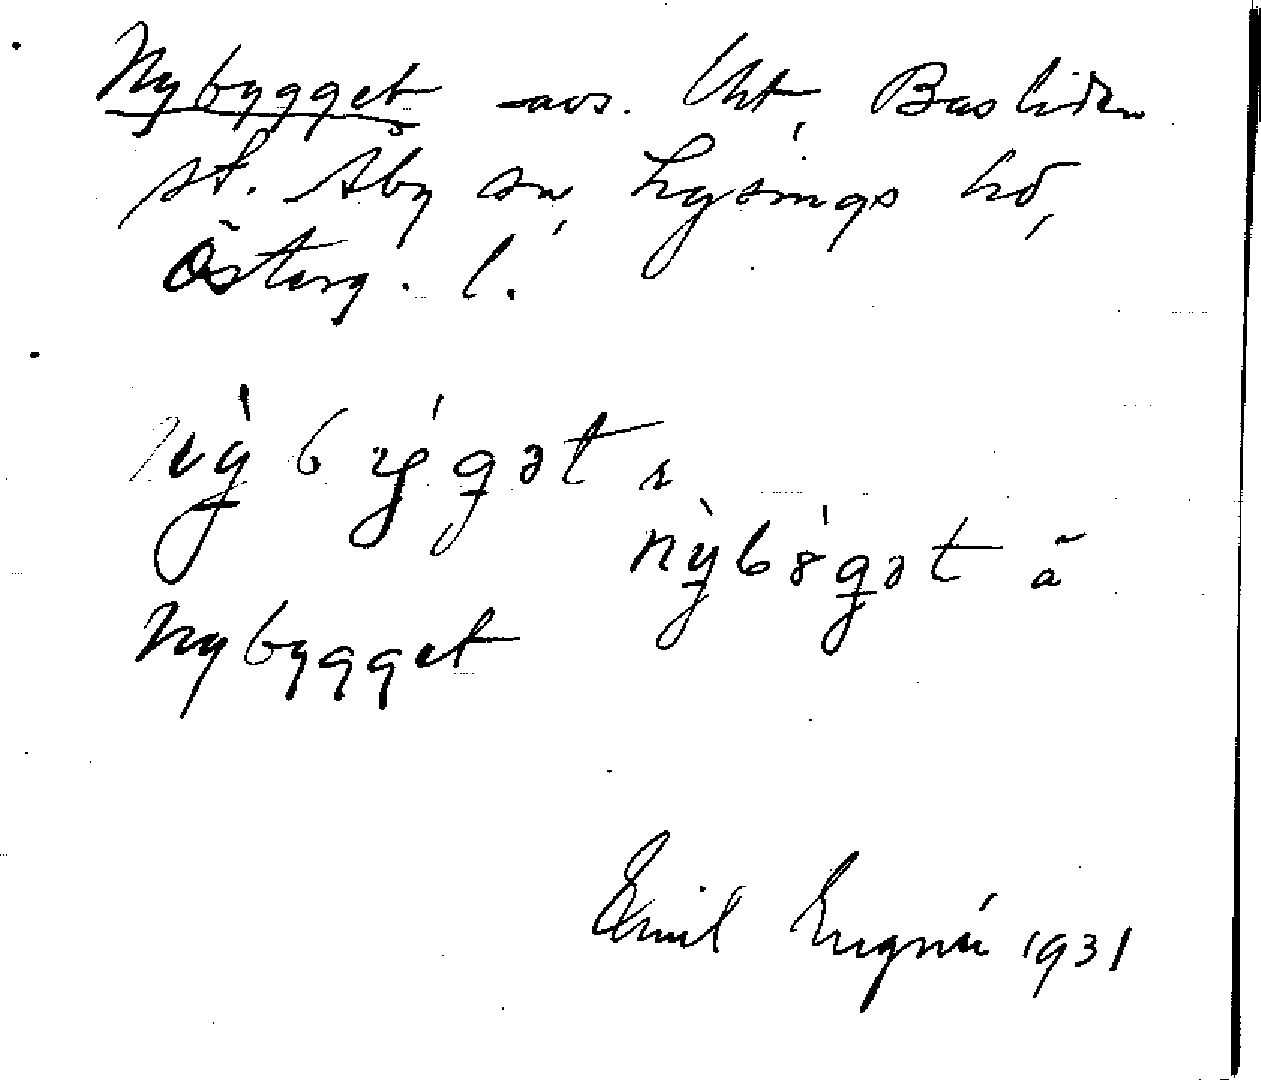 Nybygget avs. Uht, Basliden
st. Åby sn, Lysings hd,
Österg. l.
nỳbýgət
nỳbǿgət ā
Nybygget
Emil Lugné 1931